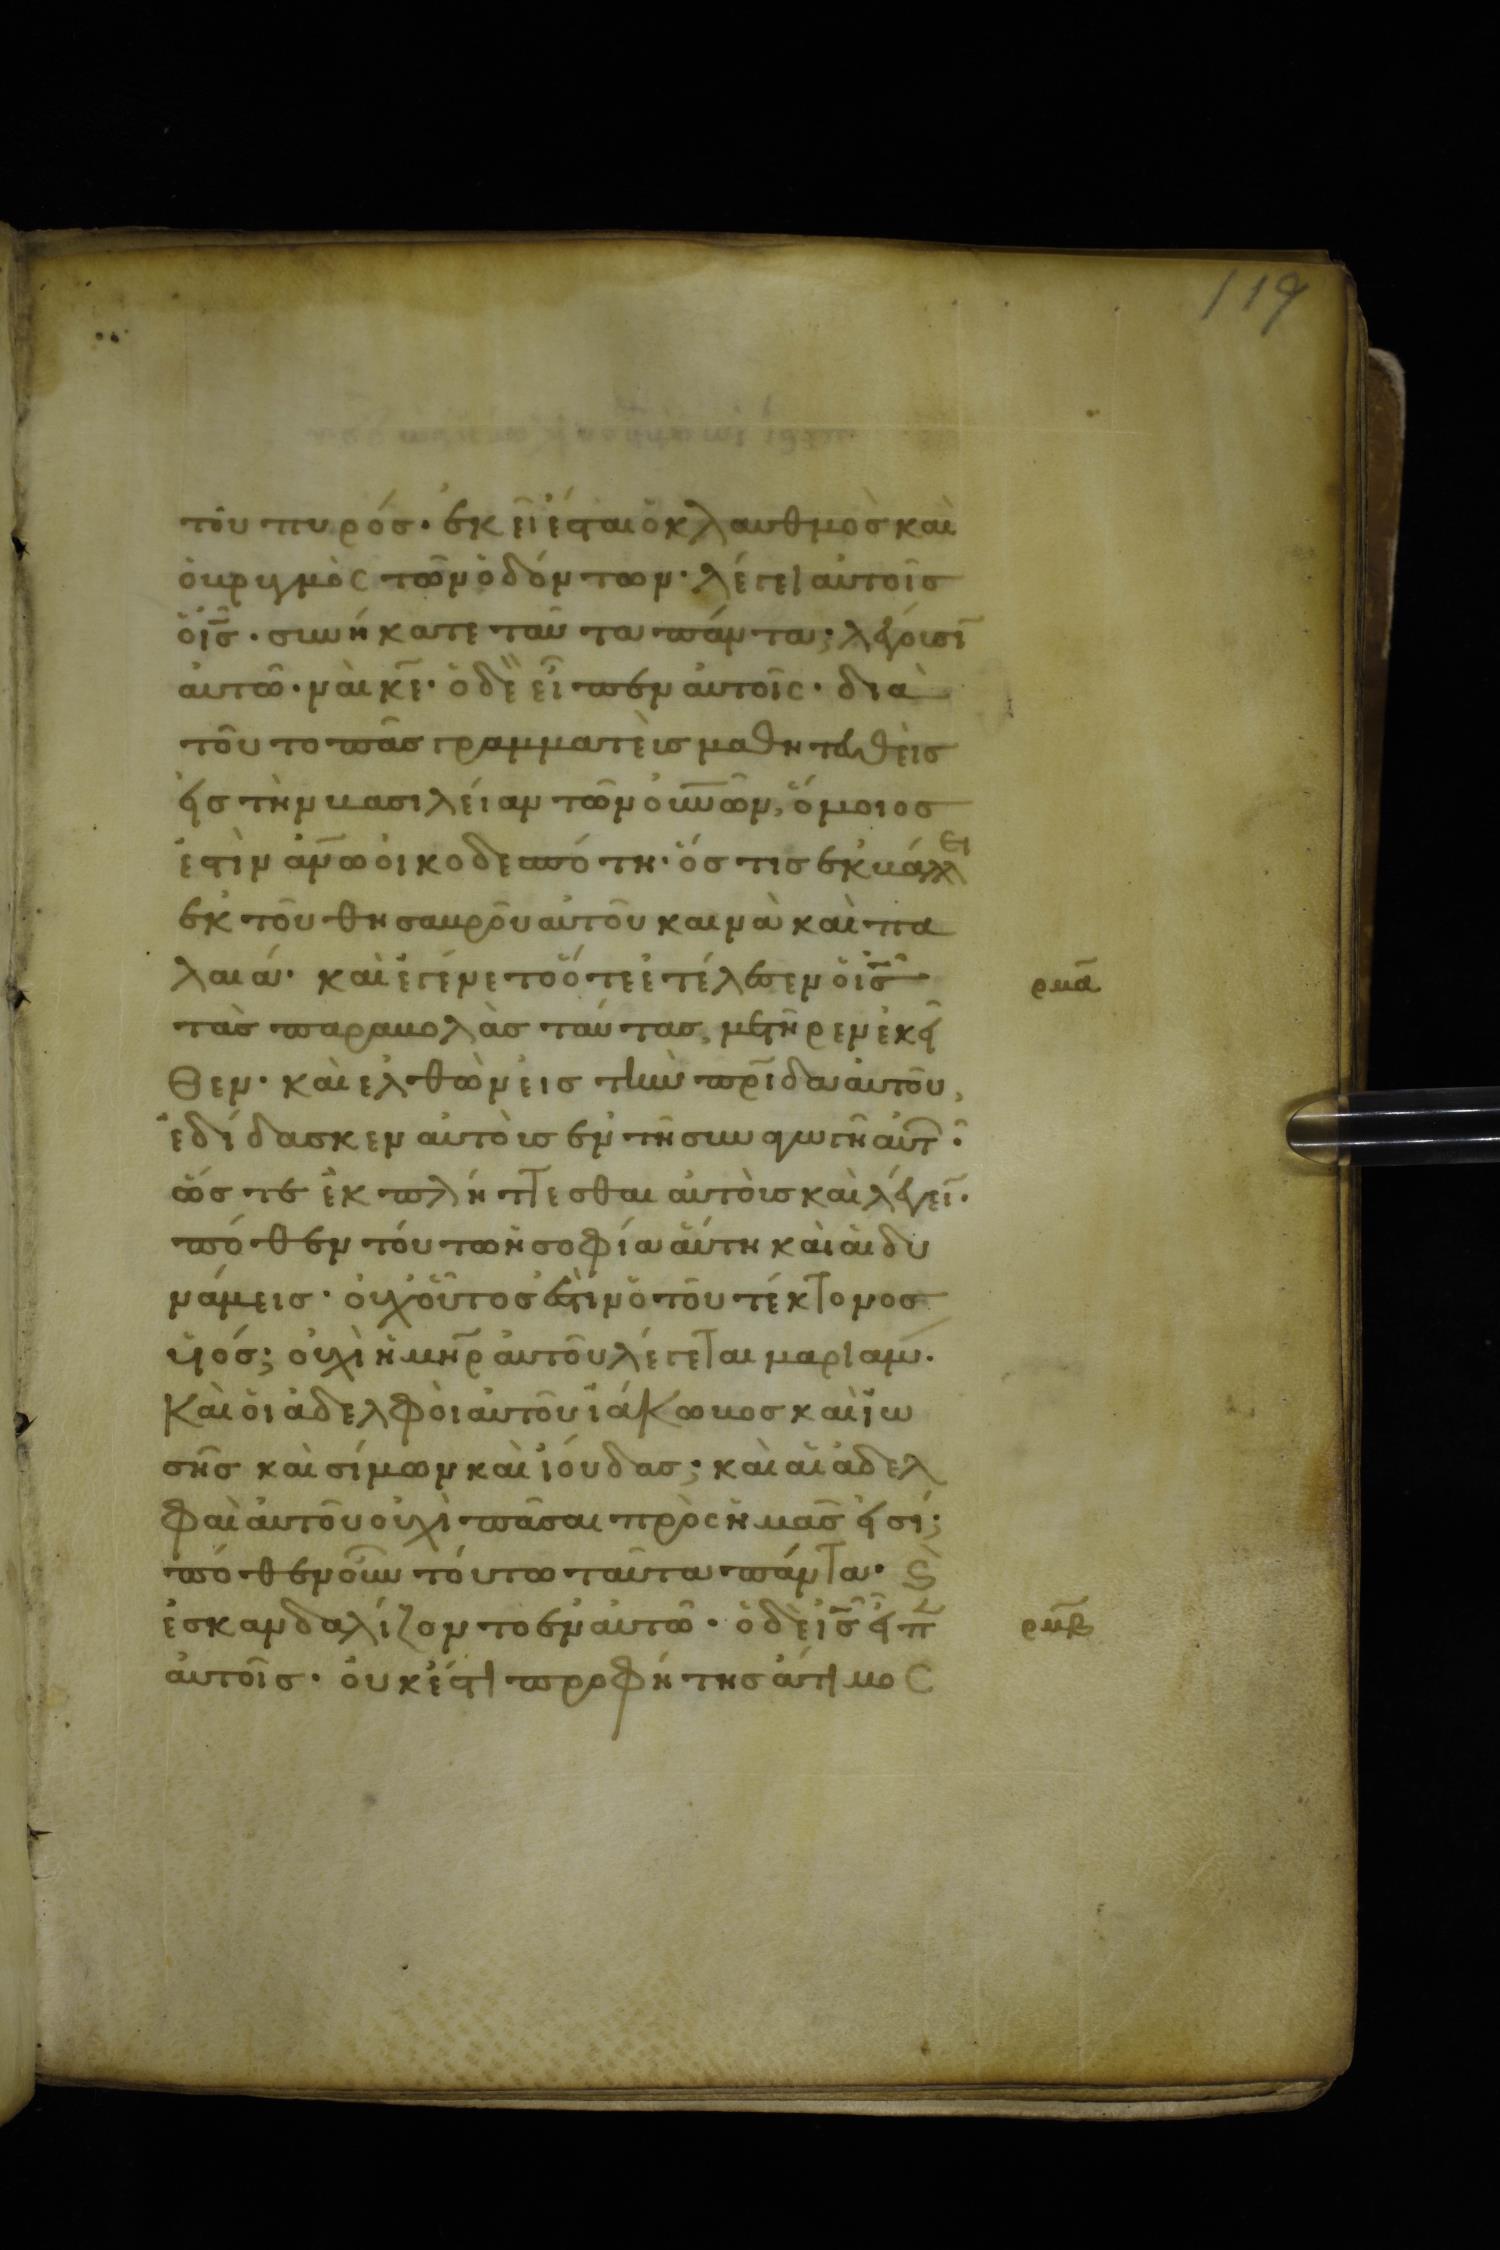 119
τοῦ πυρός· ἐκεῖ ἔσται ὁ κλαυθμὸς καὶ
ὁ βρυγμὸς τῶν ὀδόντων· λέγει αὐτοῖς
ὁ ι̅ς̅· συνήκατε ταῦτα πάντα; λέγουσι̅
αὐτῶ· ναὶ κ̅ε̅· ὁ δὲ εἶπεν αὐτοῖς· διὰ
τοῦτο πᾶς γραμματεὶς μαθητευθεὶς
εἰς τὴν βασιλείαν τῶν ο̅υ̅ν̅ω̅ν̅, ὅμοιος
ἐστὶν α̅ν̅ω̅ οἰκοδεσπότη· ὅστις ἐκβάλλει
ἐκ τοῦ θησαυροῦ αὐτοῦ καινὰ καὶ πα
λαιά· καὶ ἐγένετο ὅτε ἐτέλεσεν ὁ ι̅ς̅
ρμα̅
τὰς παραβολὰς ταύτας, μετῆρεν ἐκεῖ
θεν· καὶ ἐλθὼν εἰς τὴν π̅ρ̅ι̅δα αὐτοῦ,
ἐδίδασκεν αὐτοὺς ἐν τῆ συναγωγῆ αὐτ·
ὥστε ἐκπλήττεσθαι αὐτοὺς καὶ λέγει̅·
πόθεν τούτω ἡ σοφία αὕτη καὶ αἱ δυ
νάμεις· οὐχ οὗτος ἐστὶν ὁ τοῦ τέκτονος
υἱός; οὐχὶ ἡ μ̅η̅ρ̅ αὐτοῦ λέγεται μαριάμ·
Καὶ οἱ ἀδελφοὶ αὐτοῦ ἰάκωβος καὶ ἰω
σῆς καὶ σίμων καὶ ἰούδας; καὶ αἱ ἀδελ
φαὶ αὐτοῦ οὐχὶ πᾶσαι πρὸς ἡμᾶς εἰσί;
πόθεν οὖν τούτω ταῦτα πάντα· ϗ
ἐσκανδαλίζοντο ἐν αὐτῶ· ὁ δὲ ι̅ς̅ εἶπ̅
ρμβ̅
αὐτοῖς· οὐκ ἔστι προφήτης ἄτιμος